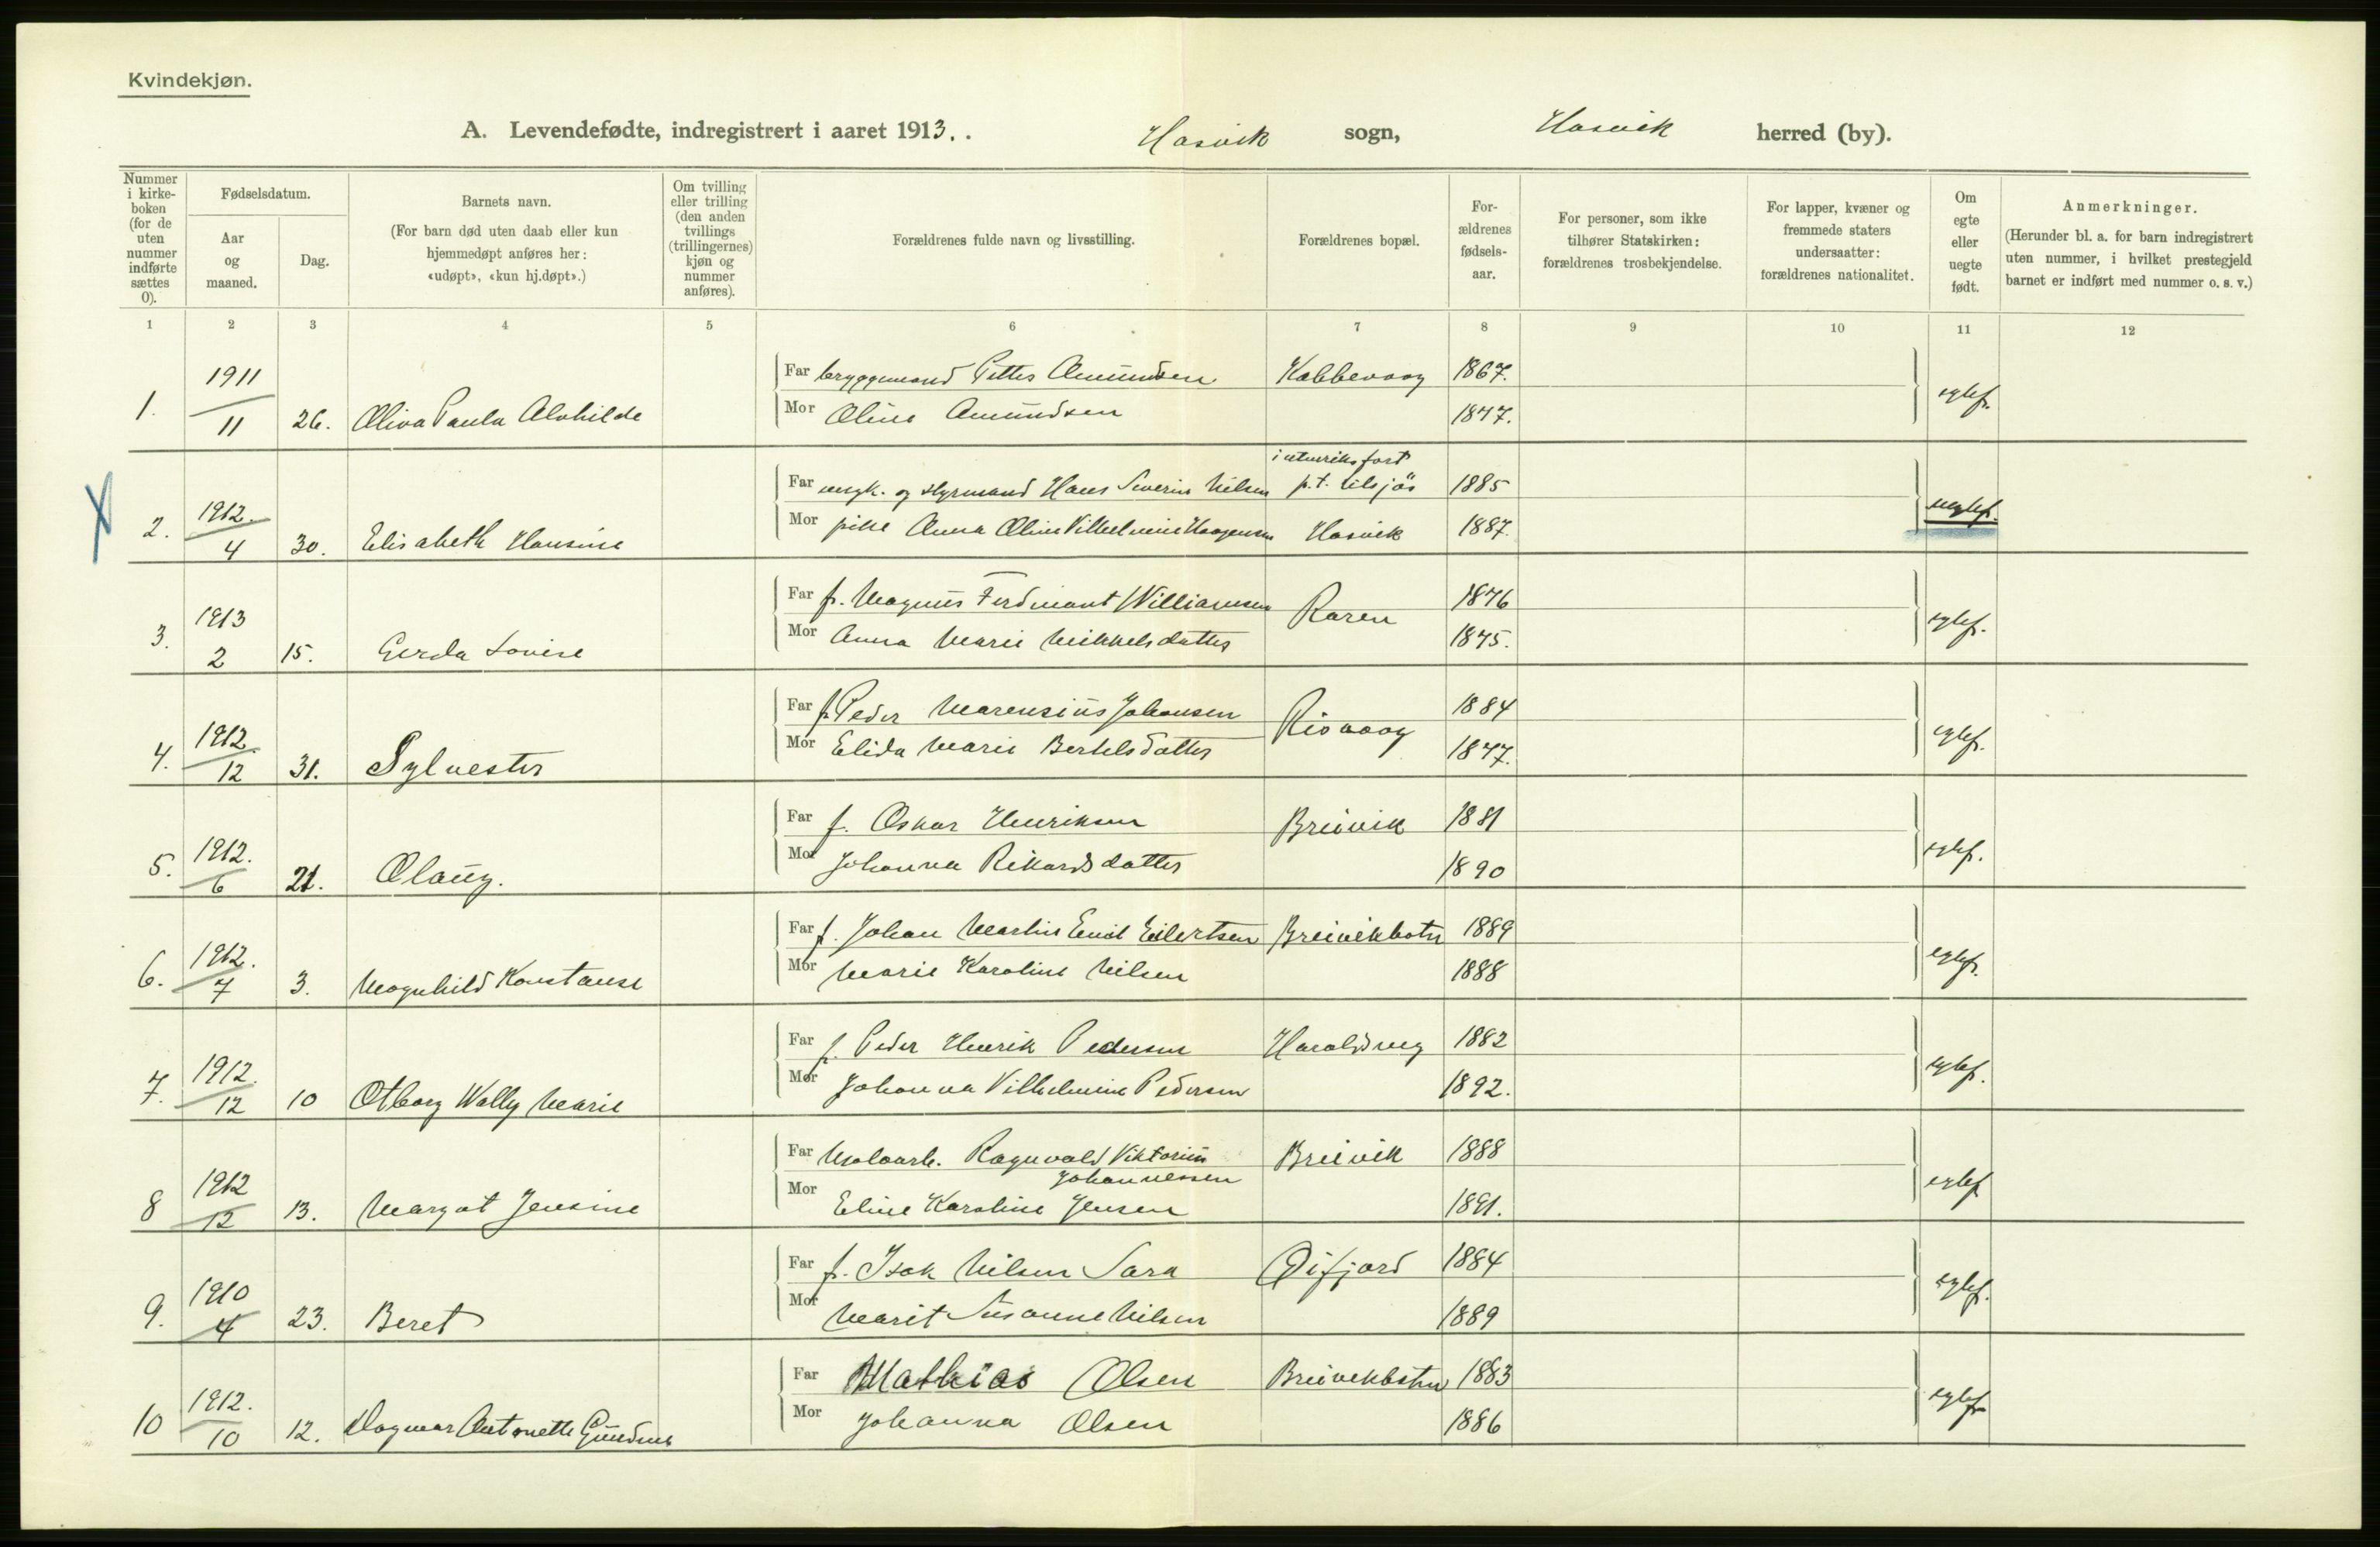 Kvindekjøn.
A. Levendefødte, indregistrert i aaret 1913. . Hasvik sogn, Hasvik herred (by).
Nummer i kirke-boken (for de uten nummer indførte sættes 0).
Fødselsdatum.
Aar og maaned.
Dag.
Barnets navn.
(For barn død uten daab eller kun hjemmedøpt anføres her: «udøpt», «kun hj.døpt».)
Om tvilling eller trilling (den anden tvillings (trillingernes) kjøn og nummer anføres).
Forældrenes fulde navn og livsstilling.
Forældrenes bopæl.
For-ældrenes fødsels-aar.
For personer, som ikke tilhører Statskirken: forældrenes trosbekjendelse.
For lapper, kvæner og fremmede staters undersaatter: forældrenes nationalitet.
Om egte eller uegte født.
Anmerkninger.
(Herunder bl. a. for barn indregistrert uten nummer, i hvilket prestegjeld barnet er indført med nummer o. s. v.)
1 2 3 4 5 6 7 8 9 10 11 12
1. 1911 11 26. Oliva Paula Alvhilde
Far bryggemand Petter Amundsen Kobbevaag 1867.
Mor Oline Amundsen 1877.
egtef.
X 2. 1912. 4 30. Elisabeth Hansine
i utenriksfart
Far ungk. og styrmand Hans Severin Nilsen p.t. tilsjøs 1885
Mor pike Anna Oline Vilhelmine Haagensen Hasvik 1887.
uegtef.
3. 1913 2 15. Gerda Lovise
Far f. Magnus Ferdinant Williamsen Raren 1876
Mor Anna Marie Mikkelsdatter 1875.
egtef.
4. 1912. 12 31. Sylvester
Far f. Peder Marensius Johansen Risvaag 1884
Mor Elida Marie Bertelsdatter 1877.
egtef.
5. 1912. 6 21. Olaug.
Far f. Oskar Henriksen Breivik 1881
Mor Johanna Rikardsdatter 1890
egtef.
6. 1912. 7 3. Magnhild Konstanse
Far f. Johan Martin Emil Eilertsen Breivikbotn 1889
Mor Marie Karoline Nilsen 1888
egtef.
7. 1912. 12 10 Otborg Wally Marie
Far f. Peder Henrik Pedersen 1882
Mor Johanna Vilhelmine Pedersen 1892.
egtef.
8 1912 12 13. Margot Jensine
Far Ragnvald Viktorius Breivik 1888
Johannessen
Mor Eline Karoline Jensen 1891.
egtef
9. 1910 4 23. Beret
Far f. Isak Nilsen Sara Øifjord 1884
Mor Marit Susanne Nilsen 1889
egtef.
10 1912. 10 12. Dagmar Antonette Gundine
Far Mathias Olsen Breivikbotn 1883
Mor Johanna Olsen 1886
egtef.